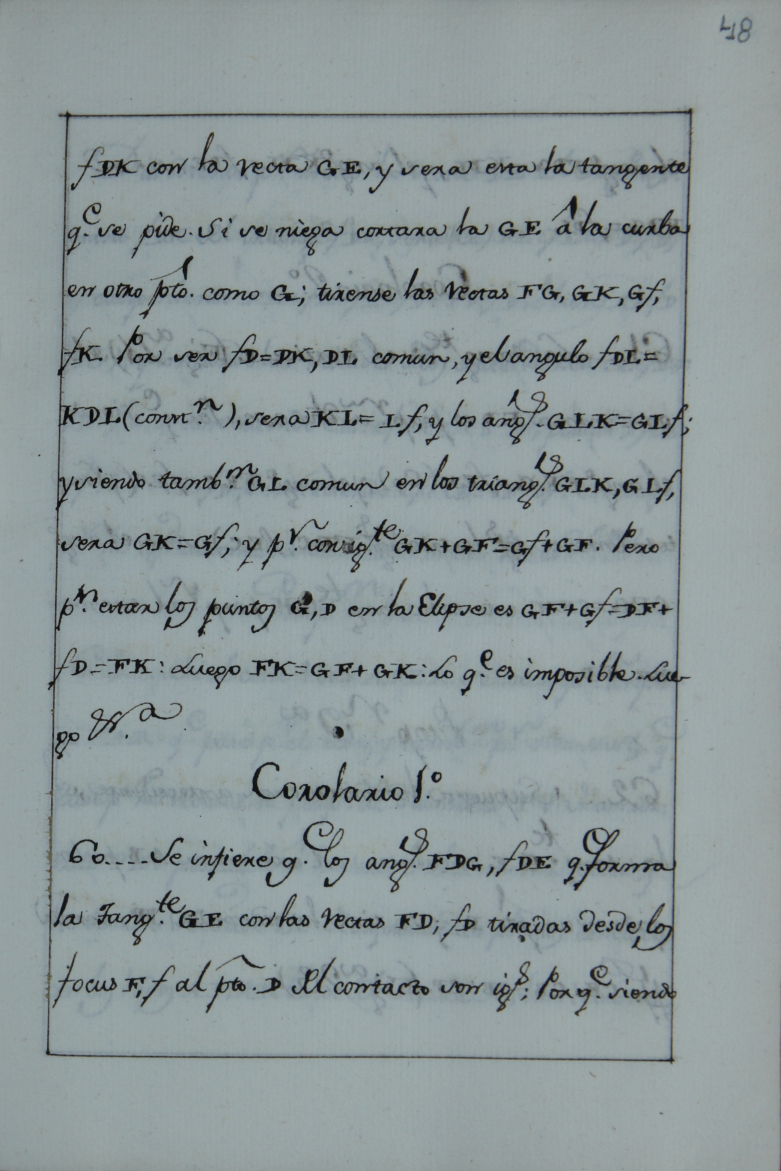 48
fDK con la recta GE, y sera esta la tangente
q.e se pide. Si se niega cortara la GE â la curba
en otro pto. como G; tirense las rectas FG, GK, Gf,
fK. Por ser fD=DK, DL comun, y el angulo fDL=
KDL (const.n), sera KL=Lf, y los ang.s GLK=GLf;
y siendo tamb.n GL comun en los triang.s GLK, GLf,
sera GK=Gf; y p.r consig.te GK+GF=Gf+GF. Pero
p.r estar los puntos G, D en la Elipse es GF+Gf=DF+
fD=FK: Luego FK=GF+GK: Lo q.e es imposible. Lue-
go &.a
Corolario 1.o
60....Se infiere q.e los ang.s FDG, fDE q.e forma
la Tang.te GE con las rectas FD, fD tiradas desde los
focus F, f al pto. D del contacto son ig.s; Porq.e siendo